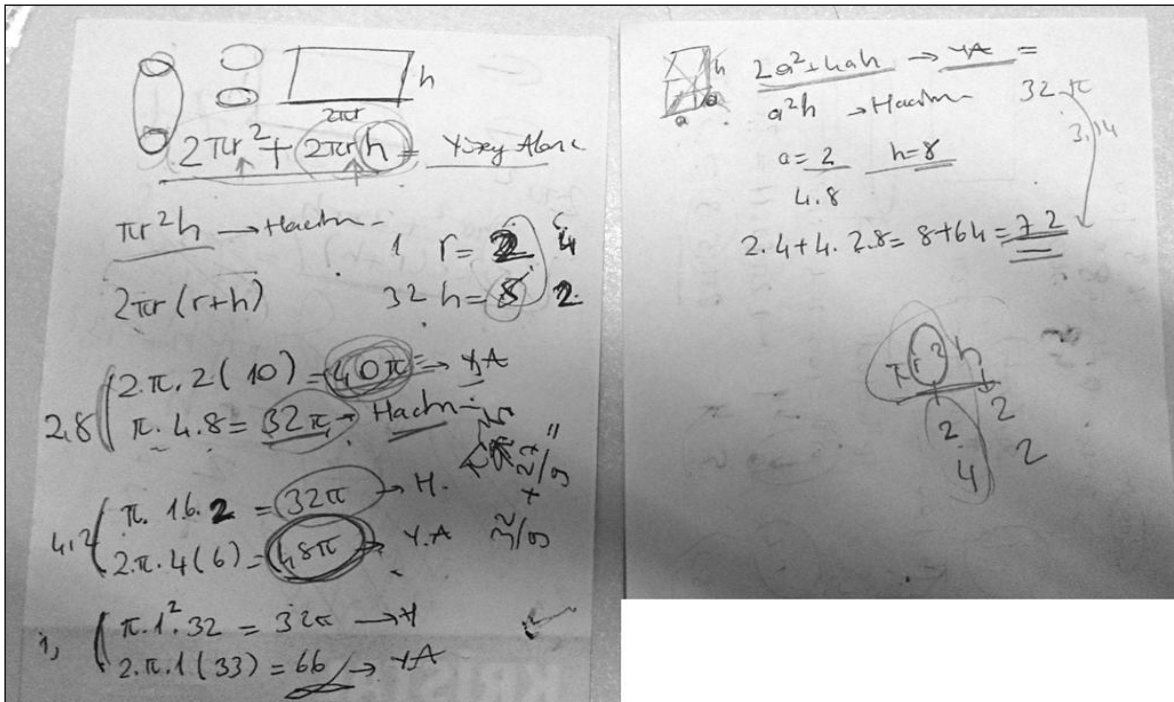 h
2πr
2πr² + 2πrh = Yüzey Alanı
πr²h → Hacim
1 r = 2 4
2πr (r+h)
32 h = 8 2
2.π.2(10) = 40π → YA
2,8
π.4.8 = 32π → Hacim
π.16.2 = 32π → H.
4,2
2.π.4(6) = 48π → Y.A
π.1².32 = 32π → H
1,
2.π.1(33) = 66 → YA
KRİSTAL
h
a
a
2a²+4ah → YA =
a²h → Hacim
32.π
3,14
a = 2 h = 8
4.8
2.4+4.2.8 = 8+64 = 72
πr²h
2 2
4 2